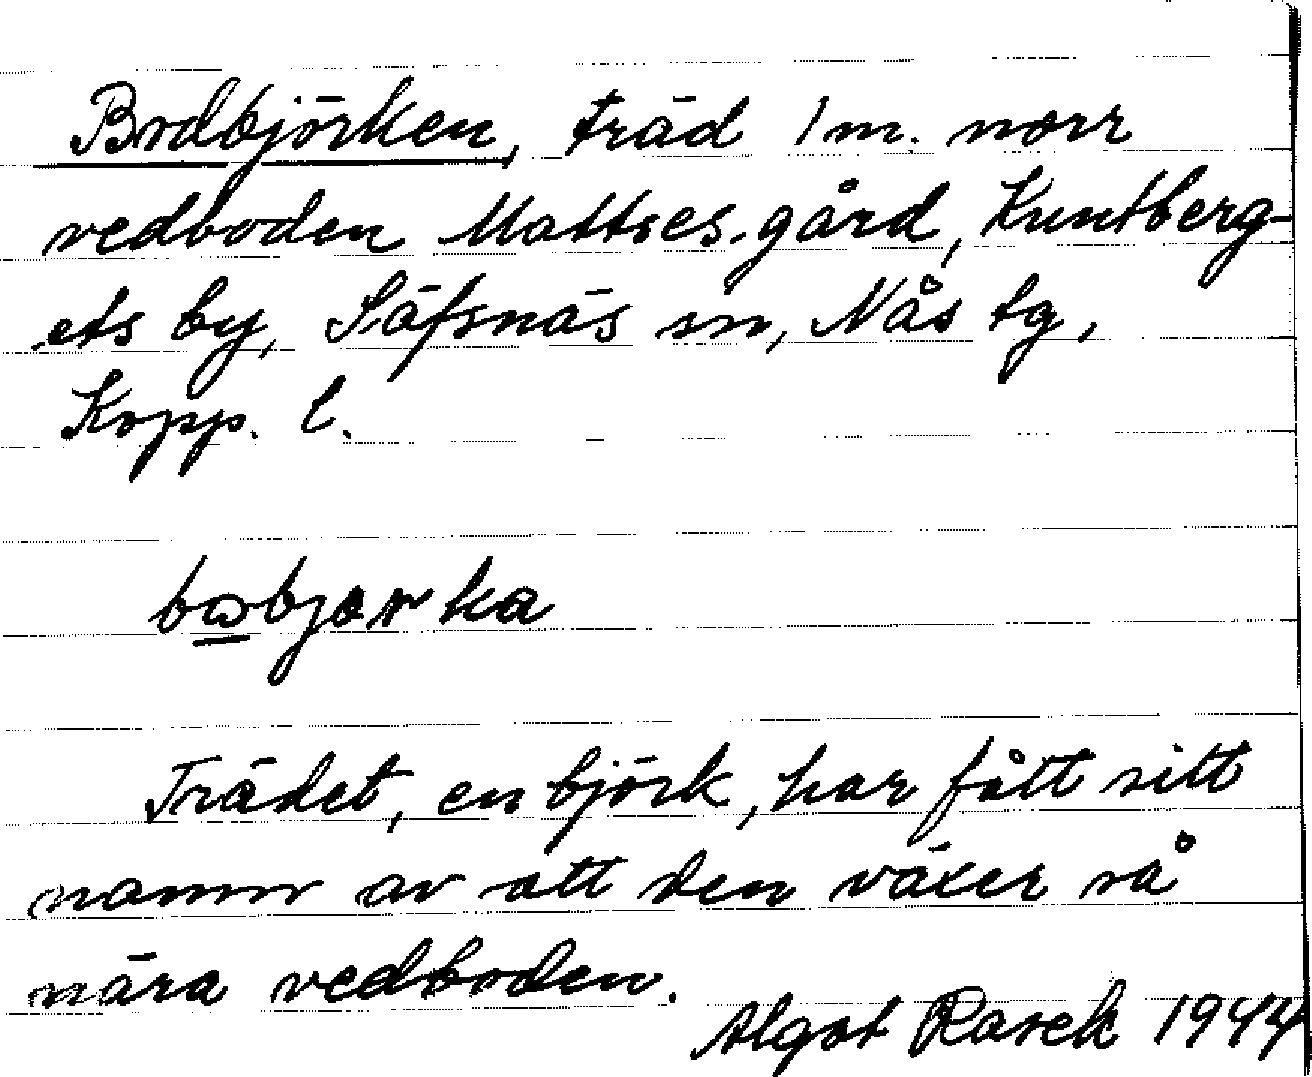 Bodbjörken, träd 1 m. norr
vedboden Mattses gård, Kuntberg-
ets by, Säfsnäs sn, Nås tg,
Kopp. l.
Trädet, en björk, har fått sitt
namn av att den växer så
nära vedboden.
Algot Rasek 1944